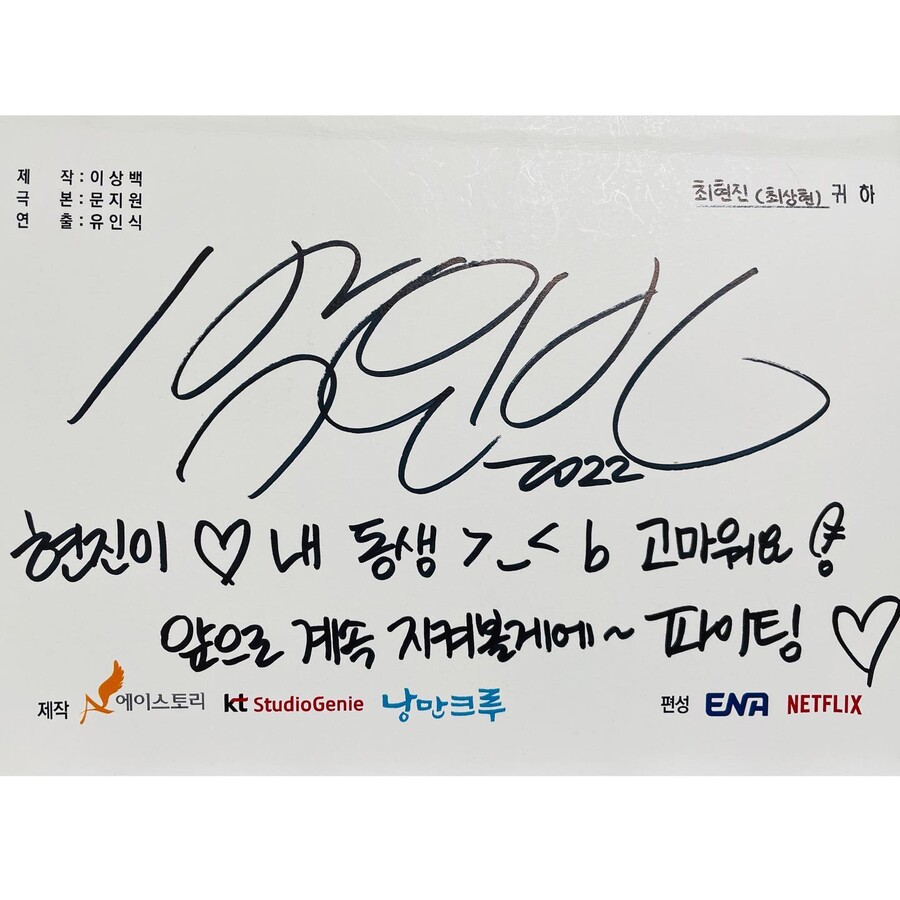 제 작 : 이상백
극 본 : 문지원
연 출 : 유인식
최현진 (최상현) 귀 하
2022
현진이 ♡ 내 동생 >_< b 고마워요
앞으로 계속 지켜볼게에~ 파이팅 ♡
제작 에이스토리 kt StudioGenie 낭만크루 편성 ENA NETFLIX